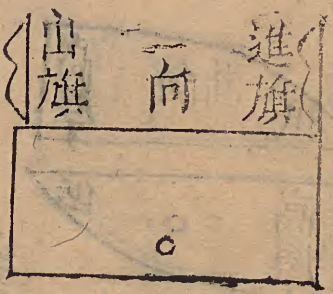 進旗
二向
山旗